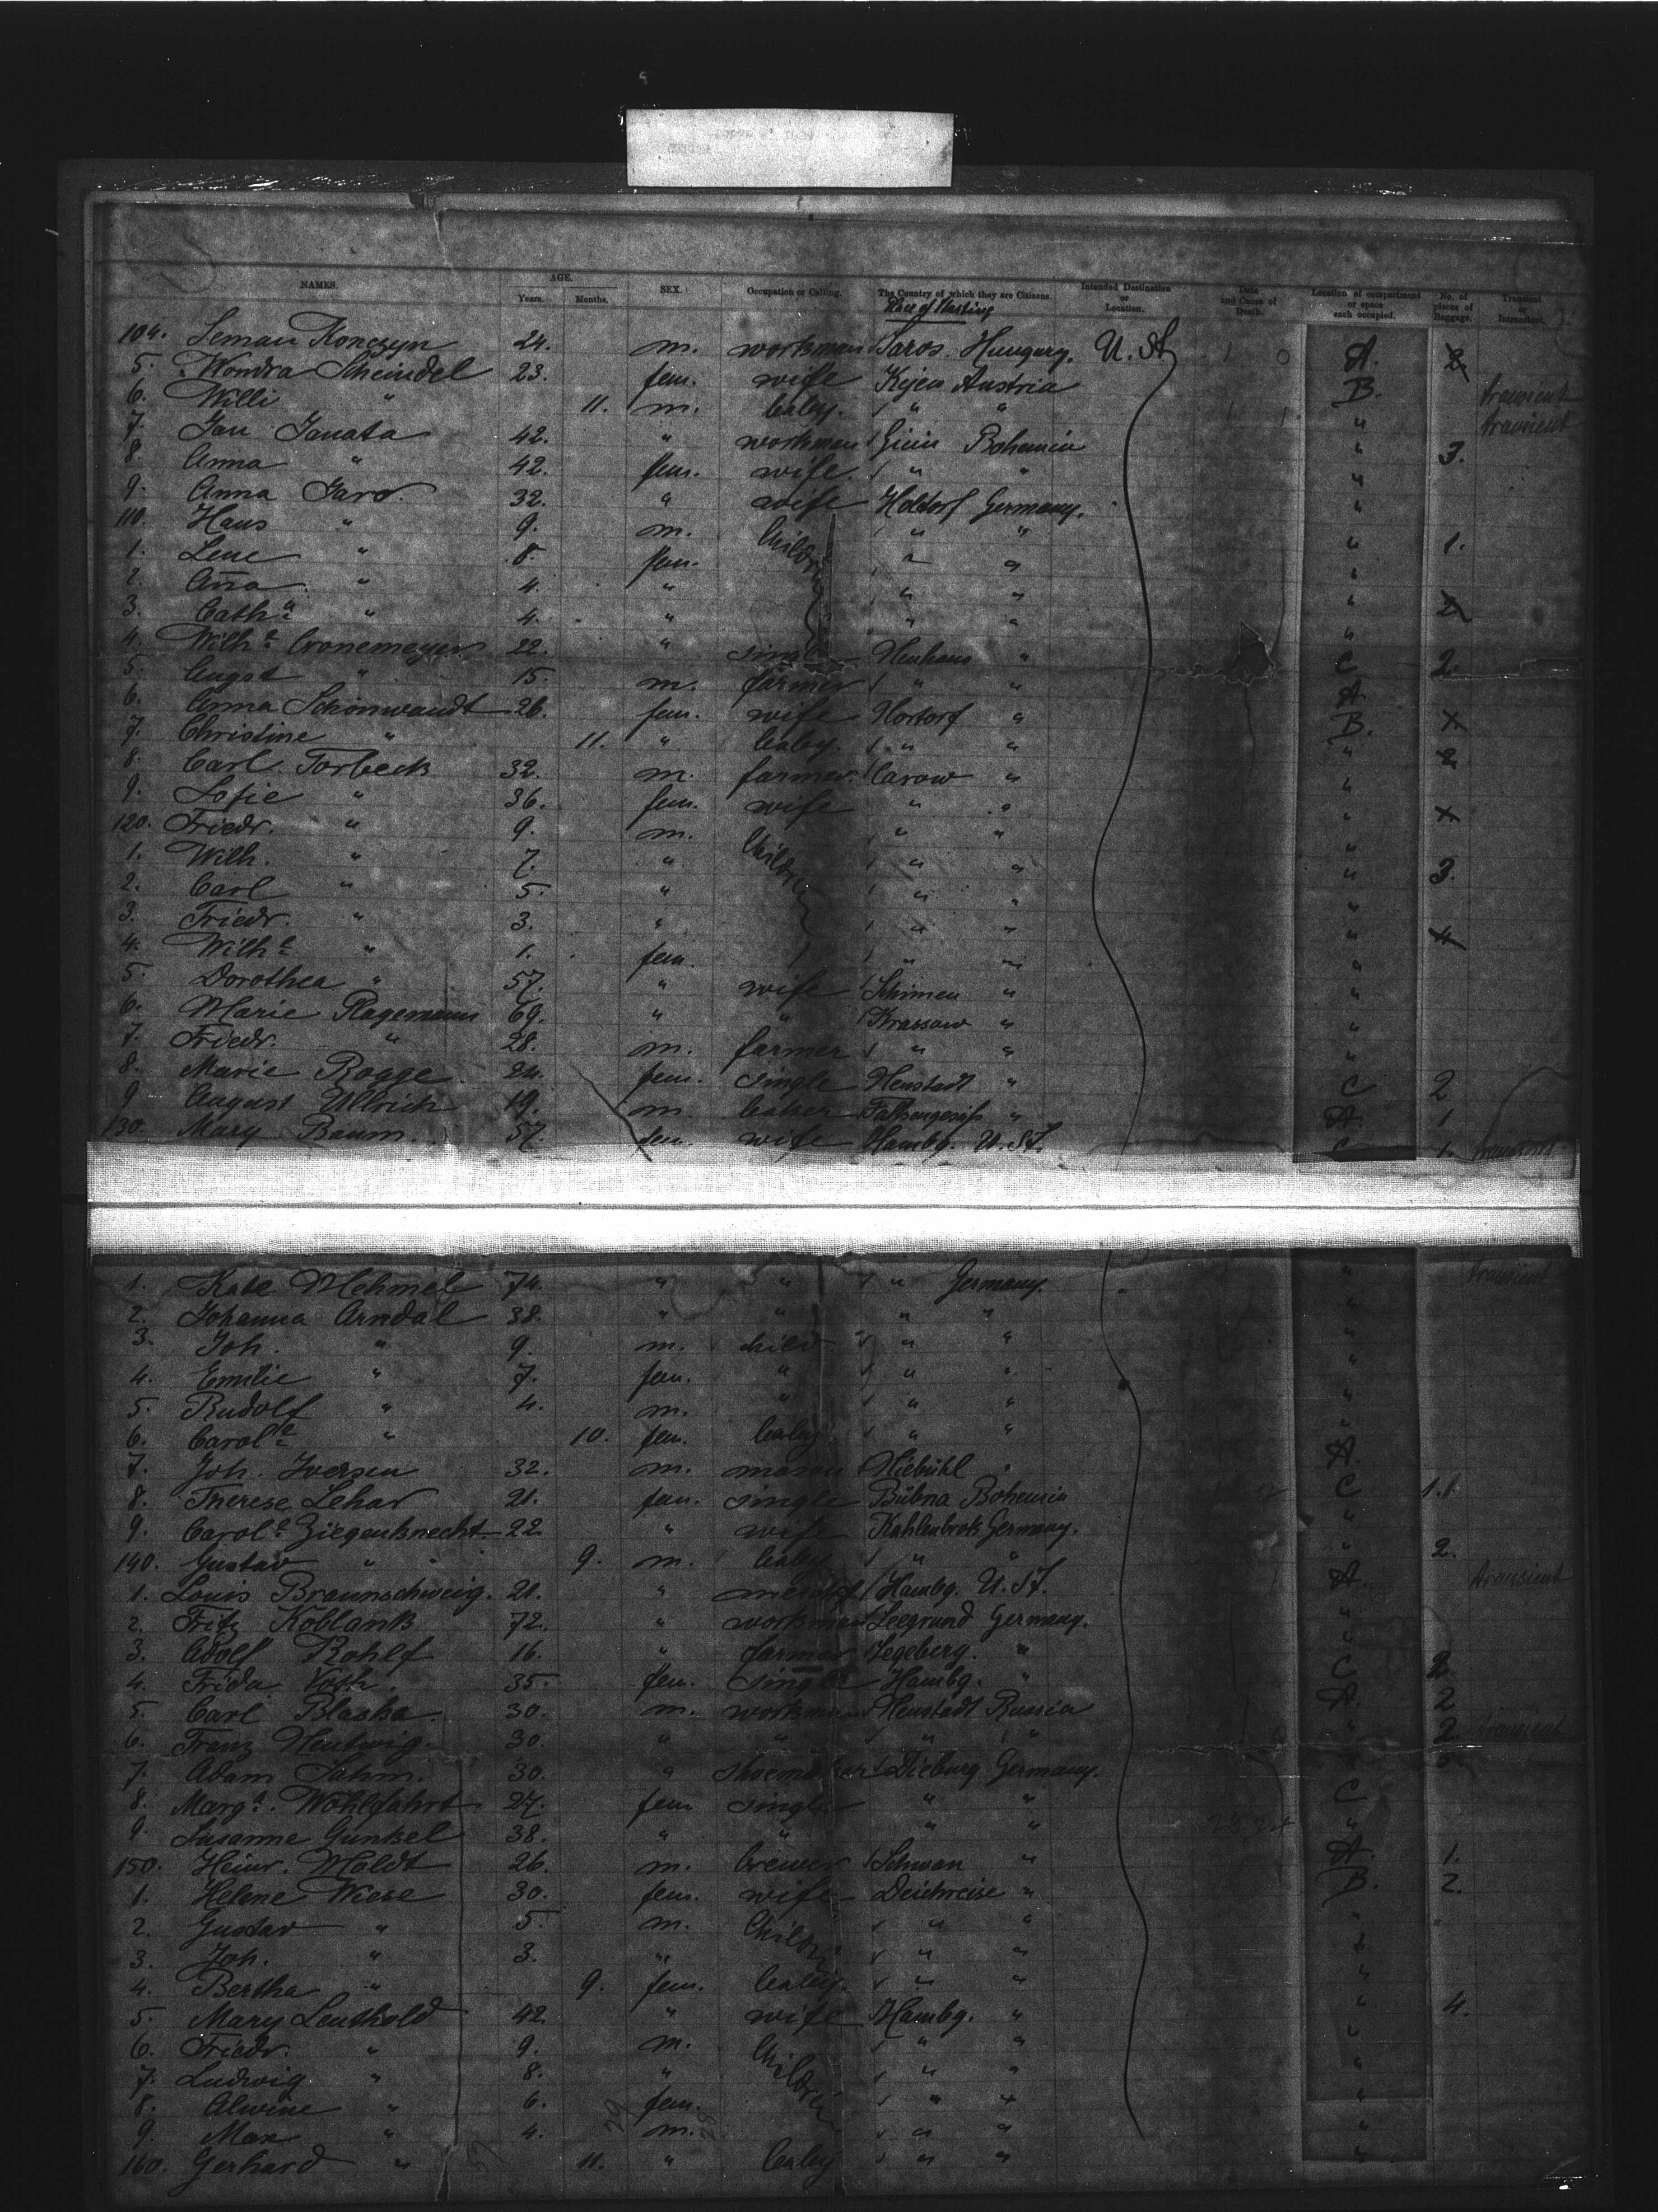 NAMES. AGE. Years. Months. SEX. Occupation or Calling. The Country of which they are Citizens. Intended Destination or Location. Date and Cause of Death. Location of compartment or space each occupied. No. of pieces of Baggage. Transient or Intransient.
Place of Starting
104. Semau Konczyn 24. m. workman Saros. Hungary. U. St. A. 2
5. Wondra Scheindel 23. fem. wife Kejea Austria B. transient
6. Willi " 11. m. baby. " " " transient
7. Jan Janata 42. " workman Gicin Bohemia " 3.
8. Anna " 42. fem. wife. " " "
9. Anna Jard. 32. " wife Holtorf Germany. "
110. Hans " 9. m. Children " " " 1.
1. Lene " 8. fem. " " "
2. Anna " 4. " " " " 2
3. Cath.a " 4. " " " "
4. Wilh.e Cronemeyer 22. " single Neuhaus " C 2.
5. Augst " 15. m. farmer " " A.
6. Anna Schönwandt 26. fem. wife Nortorf " B.
7. Christine " 11. " baby. " " " 2
8. Carl Torbeck 32. m. farmer. Carow " "
9. Sofie " 36. fem. wife " " "
120. Friedr. " 9. m. Children " " "
1. Wilh. " 7. " " " " 3.
2. Carl " 5. " " " "
3. Friedr. " 3. " " " " 4
4. Wilh.e " 1. fem. " " "
5. Dorothea " 57. " wife Schimen " "
6. Marie Plagemann 69. " " Krassow " "
7. Friedr. " 28. m. farmer " " "
8. Marie Rogge 24. fem. single Neustadt " C 2
9 August Ullrich 19. m. baker " A. 1
130. Mary Baum. 57. fem. wife Hambg. U. St. C 1. transient
1. Kate Mehmel 74. " " " Germany. " transient
2. Johanna Arndal 38. " " " " "
3. Joh. " 9. m. child " " "
4. Emilie " 7. fem. " " " "
5. Rudolf " 4. m. " " " "
6. Carol.e " 10. fem. baby " " "
7. Joh. Iversen 32. m. mason Niebühl " A.
8. Therese Lehar 21. fem. single Bübna Bohemia C 1.
9. Carol.e Ziegenknecht 22. " wife Kahlenbrok Germany. "
140. Gustav " 9. m. baby " " " 2.
1. Louis Braunschweig. 21. " Hambg. U. St. A. transient
2. Fritz Koblank 72. " workman Seegrund Germany. "
3. Adolf Rohlf 16. " farmer Segeberg. " "
4. Frida Voth. 35. fem. single Hambg. " C 2
5. Carl Blaska. 30. m. workman Neustadt Russia A. 2
6. Franz Hentwig. 30. " " " " " 2 transient
7. Adam Sahm. 30. " shoemaker Dieburg Germany. "
8. Marg.a Wohlfahrt 27. fem single " " C
9. Susanne Gunkel 38. " " " " "
150. Heinr. Moldt 26. m. brewer Schwan " A. 1.
1. Helene Wiese 30. fem. wife Deichreise " B. 2.
2. Gustav " 5. m. Children " " "
3. Joh. " 3. " " " "
4. Bertha " 9. fem. baby. " " "
5. Mary Leuthold 42. " wife Hambg. " " 4.
6. Friedr. " 9. m. Children " " "
7. Ludwig " 8. " " " "
8. Alwine " 6. fem. " " "
9. Max " 4. m. " " "
160. Gerhard " 11. " baby " " "